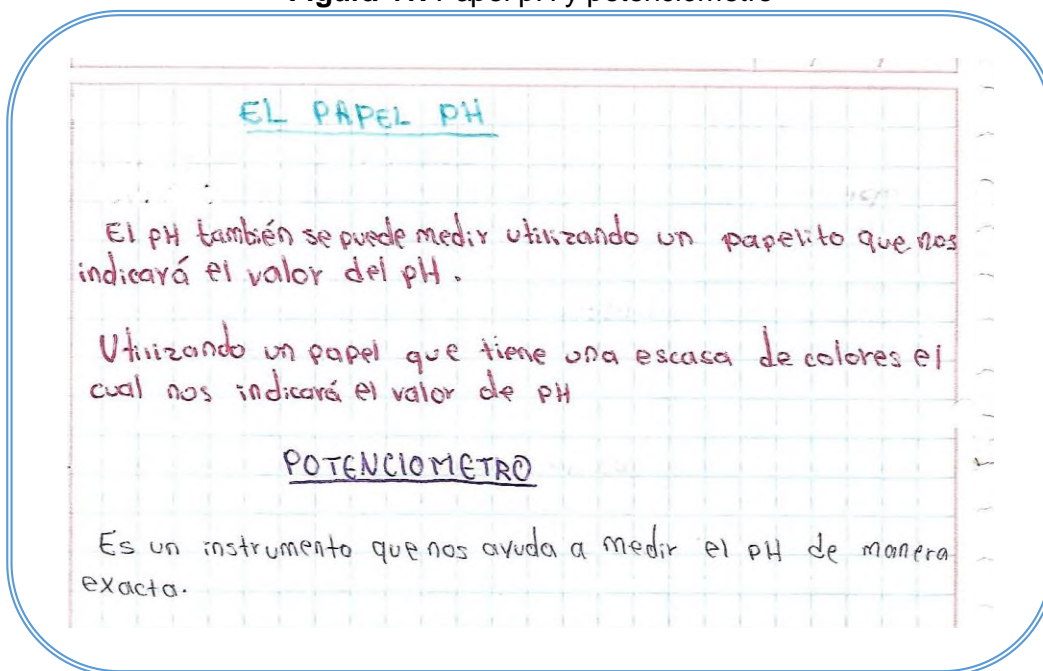 EL PAPEL PH
El pH también se puede medir utilizando un papelito que nos
indicará el valor del pH.
Utilizando un papel que tiene una escasa de colores el
cual nos indicará el valor de PH
POTENCIOMETRO
Es un instrumento que nos ayuda a medir el pH de manera
exacta.